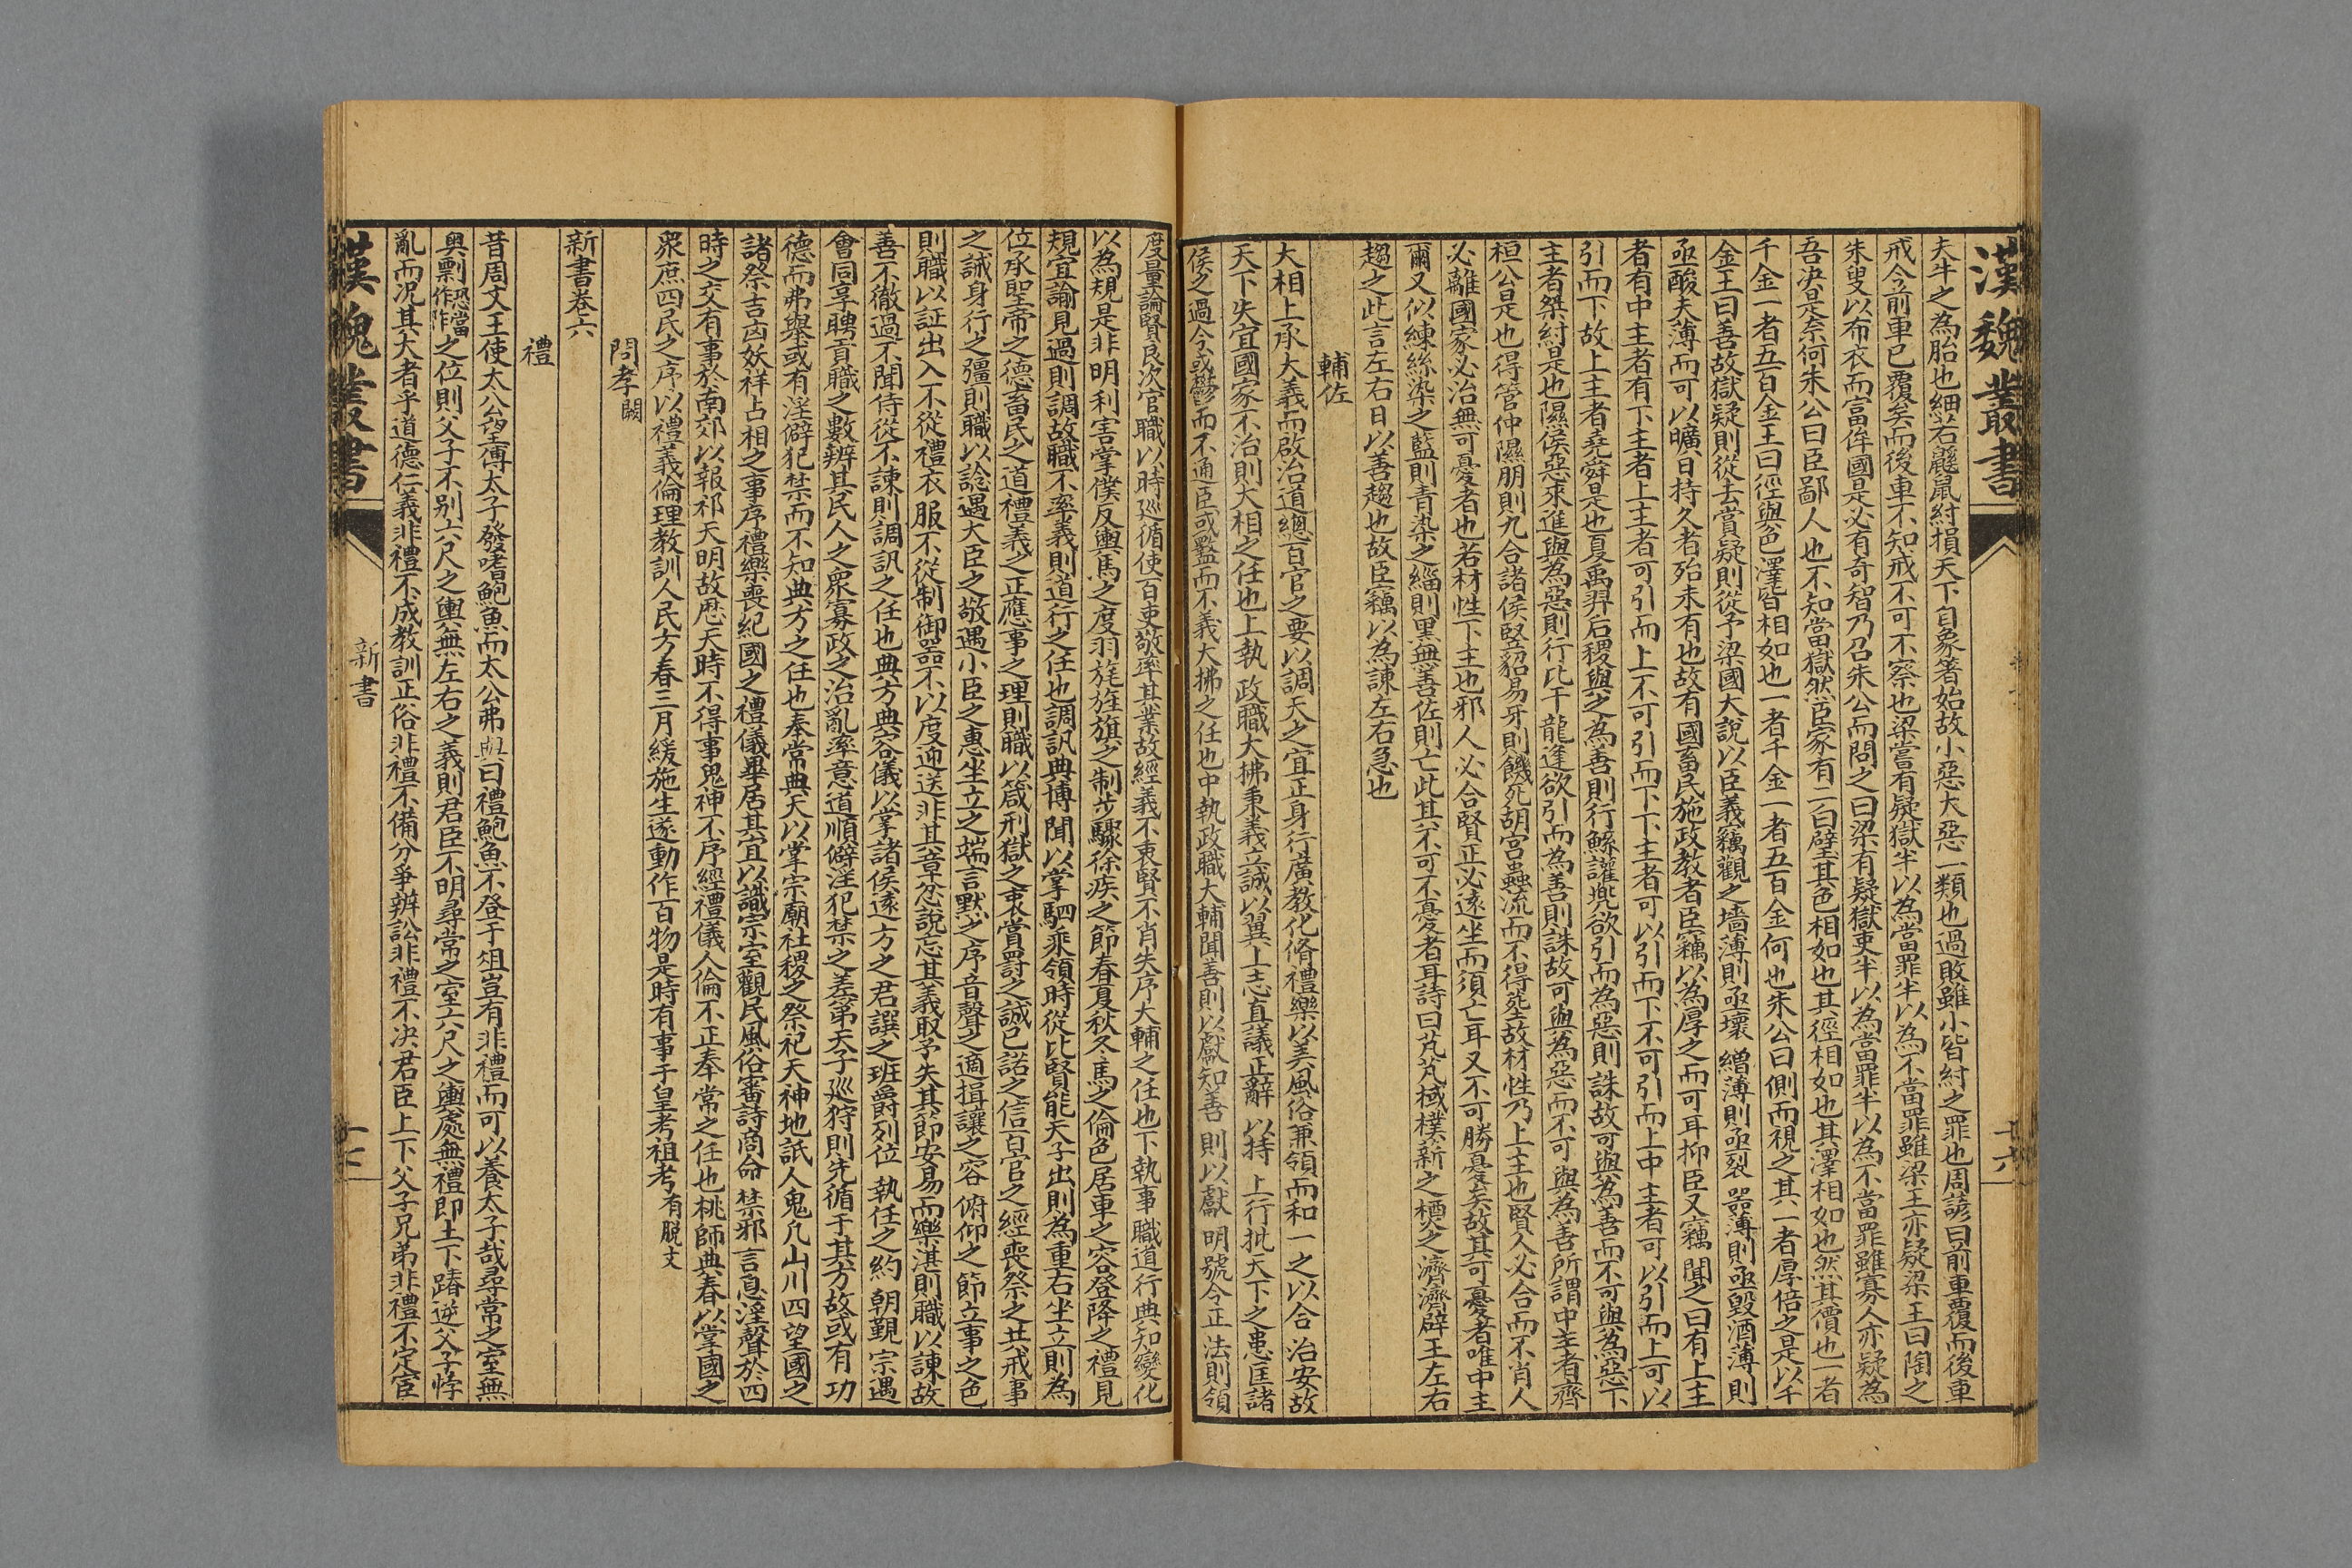 漢魏叢書
十六
夫牛之為胎也細若鼷鼠紂損天下自象箸始故小惡大惡一類也過敗雖小皆紂之罪也周諺曰前車覆而後車
戒今前車已覆矣而後車不知戒不可不察也梁嘗有疑獄半以為當罪半以為不當罪雖梁王亦疑梁王曰陶之
朱叟以布衣而富侔國是必有奇智乃召朱公而問之曰梁有疑獄吏半以為當罪半以為不當罪雖寡人亦疑為
吾決是奈何朱公曰臣鄙人也不知當獄然臣家有二白璧其色相如也其徑相如也其澤相如也然其價也一者
千金一者五百金王曰徑與色澤皆相如也一者千金一者五百金何也朱公曰側而視之其一者厚倍之是以千
金王曰善故獄疑則從去賞疑則從予梁國大說以臣義竊觀之墻薄則亟壞繒薄則亟裂器薄則亟毀酒薄則
亟酸夫薄而可以曠日持久者殆未有也故有國畜民施政教者臣竊以為厚之而可耳抑臣又竊聞之曰有上主
者有中主者有下主者上主者可引而上不可引而下下主者可以引而下不可引而上中主者可以引而上可以
引而下故上主者堯舜是也夏禹羿后稷與之為善則行鯀讙兠欲引而為惡則誅故可與為善而不可與為惡下
主者桀紂是也隰侯惡來進與為惡則行比干龍逢欲引而為善則誅故可與為惡而不可與為善所謂中主者齊
桓公是也得管仲隰朋則九合諸侯竪貂易牙則饑死胡宮蟲流而不得塟故材性乃上主也賢人必合而不肖人
必離國家必治無可憂者也若材性下主也邪人必合賢正必遠坐而須亡耳又不可勝憂矣故其可憂者唯中主
爾又似練絲染之藍則青染之緇則黑無善佐則亡此其不可不憂者耳詩曰芃芃棫樸薪之槱之濟濟辟王左右
趨之此言左右日以善趨也故臣竊以為諫左右急也
輔佐
大相上承大義而啟治道總百官之要以調天之宜正身行廣教化脩禮樂以美風俗兼領而和一之以合治安故
天下失宜國家不治則大相之任也上執政職大拂秉義立誠以翼上志直議正辭以持上行批天下之患匡諸
侯之過令或鬱而不通臣或盭而不義大拂之任也中執政職大輔聞善則以獻知善則以獻明號令正法則領
度量論賢良次官職以時巡循使百吏敬率其業故經義不衷賢不肖失序大輔之任也下執事職道行典知變化
以為規是非明利害掌僕反輿馬之度羽旄旌旗之制步驟徐疾之節春夏秋冬馬之倫色居車之容登降之禮見
規宜諭見過則調故職不率義則道行之任也調訊典博聞以掌駟乘領時從比賢能天子出則為重右坐立則為
位承聖帝之德畜民之道禮義之正應事之理則職以箴刑獄之衷賞罰之誠已諾之信百官之經喪祭之共戒事
之誠身行之彊則職以諗遇大臣之敬遇小臣之惠坐立之端言默之序音聲之適揖讓之容俯仰之節立事之色
則職以証出入不從禮衣服不從制御器不以度迎送非其章忿說忘其義取予失其節安易而樂湛則職以諫故
善不徹過不聞侍從不諫則調訊之任也典方典容儀以掌諸侯遠方之君譔之班爵列位執任之約朝覲宗遇
會同享聘貢職之數辨其民人之眾寡政之治亂率意道順僻淫犯禁之差第天子巡狩則先循于其方故或有功
德而弗舉或有淫僻犯禁而不知典方之任也奉常典天以掌宗廟社稷之祭祀天神地訧人鬼凡山川四望國之
諸祭吉凶妖祥占相之事序禮樂喪紀國之禮儀畢居其宜以識宗室觀民風俗審詩商命禁邪言息淫聲於四
時之交有事於南郊以報祁天明故歷天時不得事鬼神不序經禮儀人倫不正奉常之任也桃師典春以掌國之
眾庶四民之序以禮義倫理教訓人民方春三月緩施生遂動作百物是時有事于皇考祖考有脫文
問孝闕
新書卷六
禮
昔周文王使太公望傅太子發嗜鮑魚而太公弗與曰禮鮑魚不登于俎豈有非禮而可以養太子哉尋常之室無
奧剽恐當作阼之位則父子不別六尺之輿無左右之義則君臣不明尋常之室六尺之輿處無禮即上下踳逆父子悖
亂而况其大者乎道德仁義非禮不成教訓正俗非禮不備分爭辨訟非禮不決君臣上下父子兄弟非禮不定宦
漢魏叢書
新書